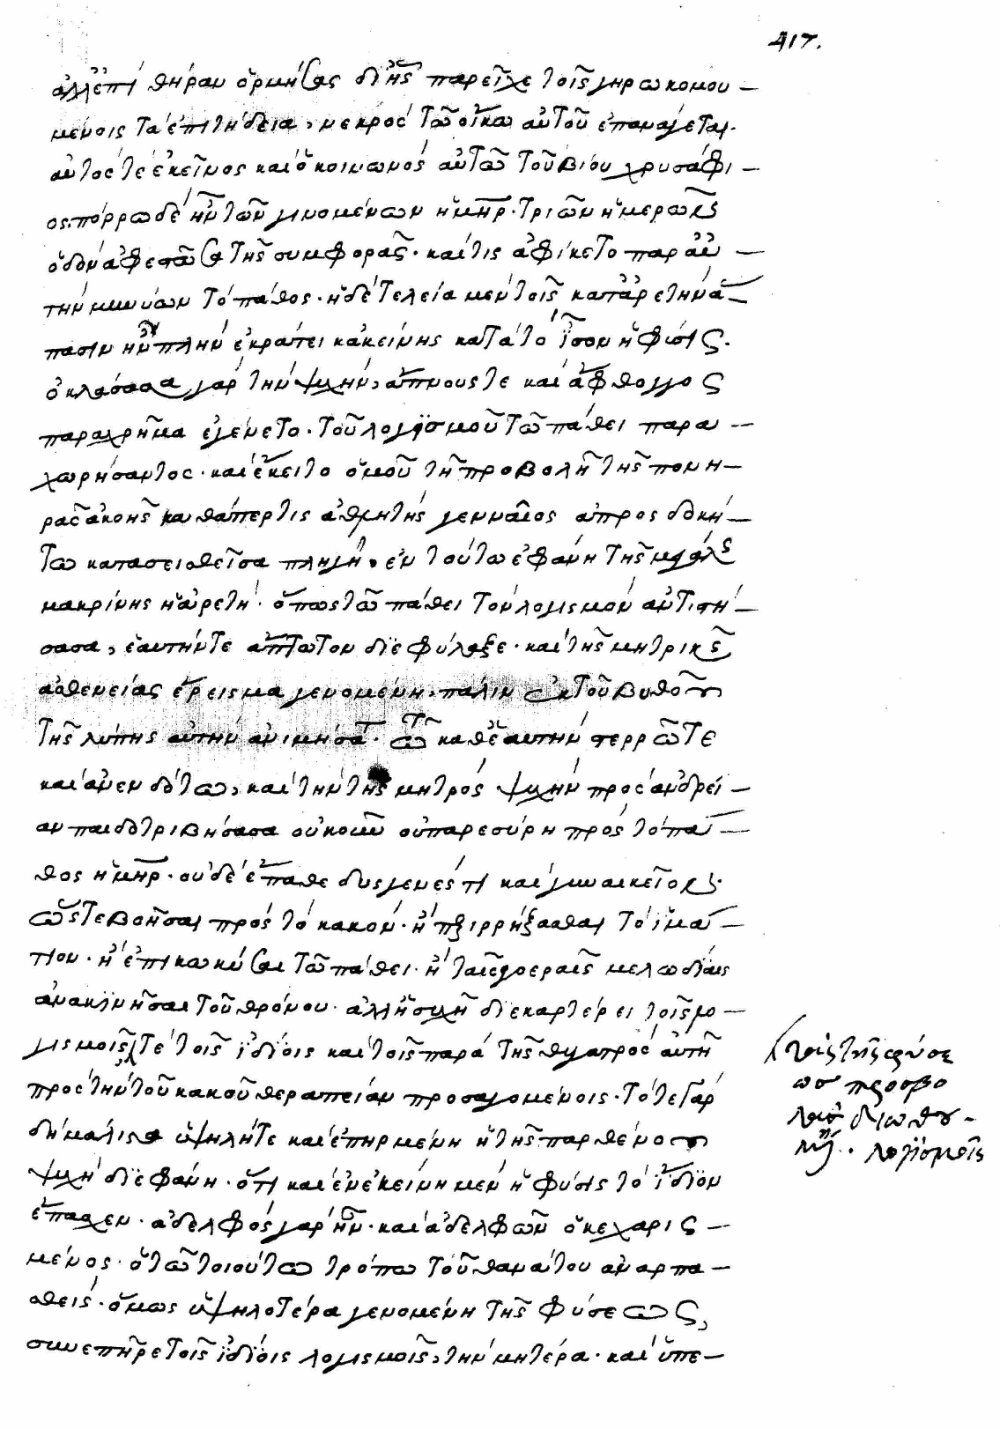 417.
ἀλλ' ἐπὶ θήραν ὁρμήσας δι' ἧς παρεῖχε τοῖς γηρωκομου-
μένοις τὰ ἐπιτήδεια, νεκρὸς τῷ οἴκῳ αὐτοῦ ἐπανάγεται.
αὐτός τε ἐκεῖνος καὶ ὁ κοινωνὸς αὐτῷ τοῦ βίου χρυσάφι-
ος. πόρρω δὲ ἦν τῶν γινομένων ἡ μηρ. τριῶν ἡμερῶν
ὁδὸν ἀφεστῶσα τῆς συμφορᾶς. καί τις ἀφίκετο παρ' αὐ-
τὴν μηνύων τὸ πάθος. ἡ δὲ τελεία μὲν τοῖς κατ' ἀρετὴν ἅ-
πασιν ἦν πλὴν ἐκράτει κἀκείνης κατὰ τὸ ἴσον ἡ φύσις.
ὀκλάσασα γὰρ τὴν ψυχήν, ἄπνους τε καὶ ἄφθογγος
παραχρῆμα ἐγένετο. τοῦ λογισμοῦ τῷ πάθει παρα-
χωρήσαντος. καὶ ἔκειτο ὁμοῦ τῇ προβολῇ τῆς πονη-
ρᾶς ἀκοῆς καθάπερ τις ἀθλητὴς γενναῖος ἀπροσδοκή-
τῳ κατασεισθεῖσα πληγῇ. ἐν τούτῳ ἐφάνη τῆς μεγάλης
μακρίνης ἡ ἀρετή. ὅπως τῷ πάθει τὸν λογισμὸν ἀντιστή-
σασα, ἑαυτήν τε ἄπτωτον διεφύλαξε. καὶ τῆς μητρικῆς
ἀσθενείας ἔρεισμα γενομένη. πάλιν ἐκ τοῦ βυθοῦ
τῆς λύπης αὐτὴν ἀνιμήσατο. τῷ καθ' ἑαυτὴν στερρῷ τε
καὶ ἀνενδότῳ, καὶ τὴν τῆς μητρὸς ψυχὴν πρὸς ἀνδρεί-
αν παιδοτριβήσασα οὐκοῦν οὐ παρεσύρη πρὸς τὸ πά-
θος ἡ μηρ. οὐδὲ ἔπαθε δυσγενές τι καὶ γυναικεῖον.
ὥστε βοῆσαι πρὸς τὸ κακόν. ἢ περιρρήξασθαι τὸ ἱμά-
τιον. ἢ ἐπικωκῦσαι τῷ πάθει. ἢ ταῖς γοεραῖς μελῳδίαις
ἀνακινῆσαι τοὺς θρήνους. ἀλλ' ἡσυχῇ διεκαρτέρει τοῖς λο-
γισμοῖς τε τοῖς ἰδίοις καὶ τοῖς παρὰ τῆς θυγατρὸς αὐτῇ
πρὸς τὴν τοῦ κακοῦ θεραπείαν προσαγομένοις. τότε γὰρ
δὴ μάλιστα ὑψηλή τε καὶ ἐπηρμένη ἡ τῆς παρθένου
ψυχὴ διεφάνη. ὅτι καὶ ἐν ἐκείνῃ μὲν ἡ φύσις τὸ ἴδιον
ἔπασχεν. ἀδελφὸς γὰρ ἦν. καὶ ἀδελφῶν ὁ κεχαρισ-
μένος. ὁ τῷ τοιούτῳ τρόπῳ τοῦ θανάτου ἀναρπα-
σθείς. ὅμως ὑψηλοτέρα γενομένη τῆς φύσεως,
συνεπῆρε τοῖς ἰδίοις λογισμοῖς, τὴν μητέρα. καὶ ὑπε-
τὰς τῆς φύσε
ως προσβο
λὰς διωθου
λογισμοῖς